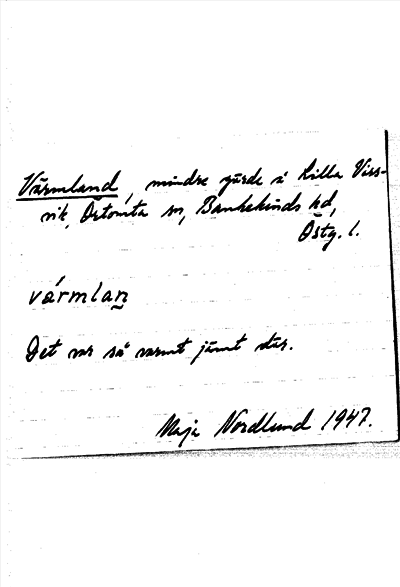 Värmland, mindre gärde i Lilla Viss-
vik, Örtomta sn, Bankekinds hd,
Östg. l.
vármlaṉ
Det var så varmt jämt där.
Maja Nordlund 1947.